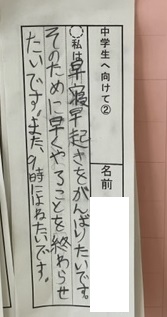 中学生へ向けて②
名前
私は早寝早起きをがんばりたいです。
そのために早くやることを終わらせ
たいです。また、9時にはねたいです。